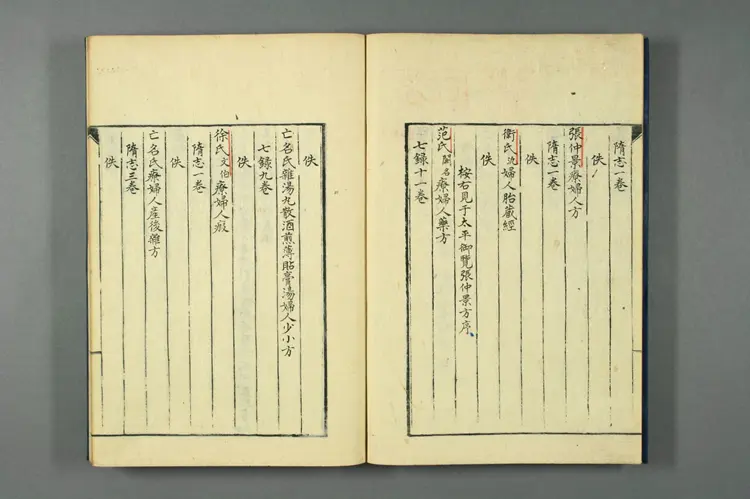 隋志一卷
佚
張仲景療婦人方
隋志一卷
佚
衛氏沈婦人胎藏經
佚
按右見于太平御覽張仲景方序
范氏闕名療婦人藥方
七錄十一卷
佚
亡名氏雜湯丸散酒煎薄貼膏湯婦人少小方
七錄九卷
佚
徐氏文伯療婦人瘕
隋志一卷
佚
亡名氏療婦人産後雜方
隋志三卷
佚